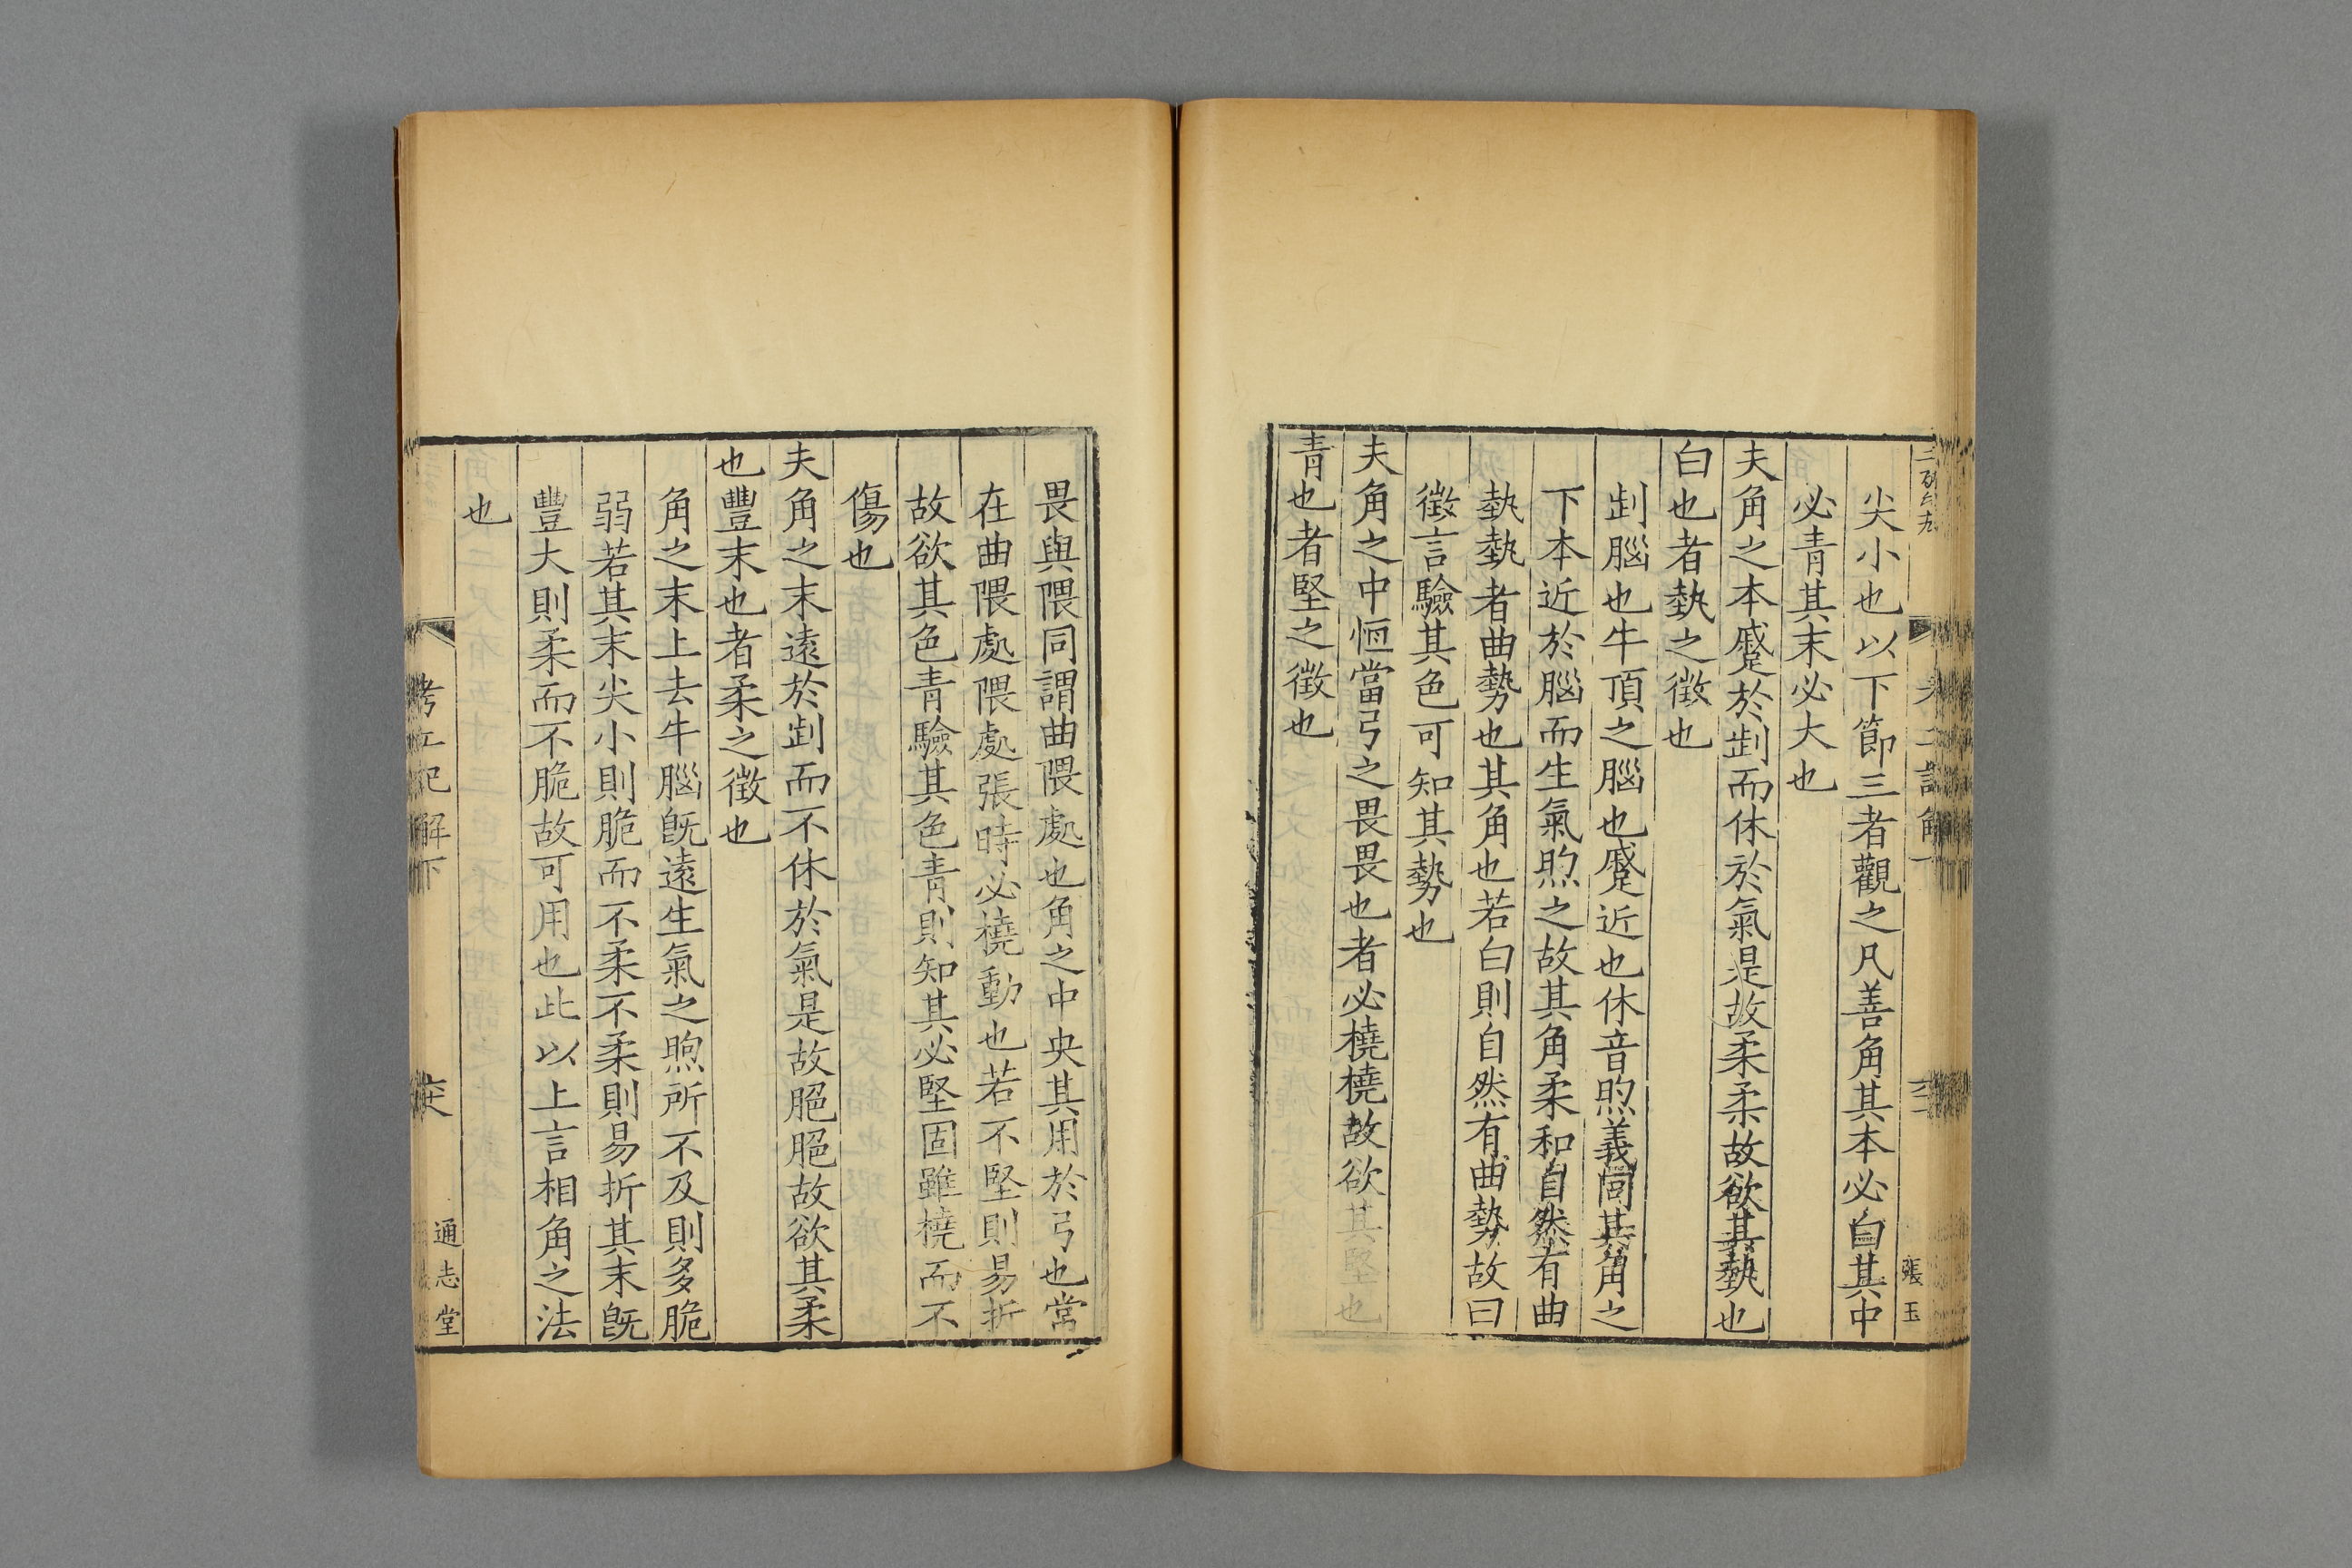 尖小也以下節三者觀之凡善角其本必白其中
必青其末必大也
夫角之本蹙於㓭而休於氣是故柔柔故欲其埶也
白也者埶之徵也
㓭腦也牛頂之腦也蹙近也休音煦義同其角之
下本近於腦而生氣煦之故其角柔和自然有曲
埶埶者曲勢也其角也若白則自然有曲勢故曰
徵言驗其色可知其勢也
夫角之中恒當弓之畏畏也者必橈橈故欲其堅也
青也者堅之徵也
張玉
畏與隈同謂曲隈處也角之中央其用於弓也常
在曲隈處隈處張時必橈動也若不堅則易折
故欲其色青驗其色青則知其必堅固雖橈而不
傷也
夫角之末遠於㓭而不休於氣是故脃脃故欲其柔
也豐末也者柔之徵也
角之末上去牛腦旣遠生氣之煦所不及則多脆
弱若其末尖小則脆而不柔不柔則易折其末旣
豐大則柔而不脆故可用也此以上言相角之法
也
考工記解下
通志堂